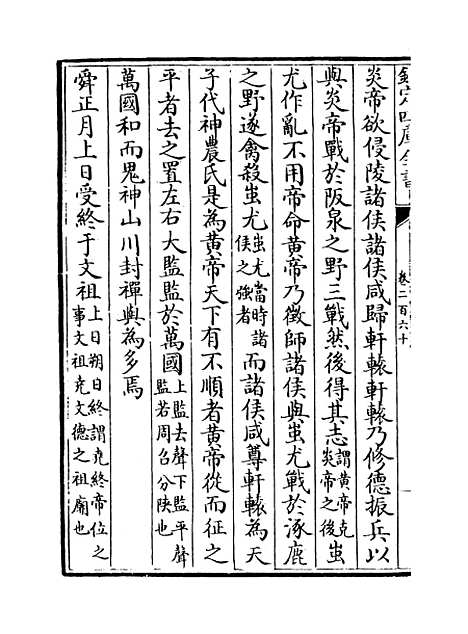 欽定四庫全書
卷二百六十
炎帝欲侵陵諸侯諸侯咸歸軒轅軒轅乃修德振兵以
與炎帝戰於阪泉之野三戰然後得其志謂黄帝克炎帝之後蚩
尤作亂不用帝命黄帝乃徵師諸侯與蚩尤戰於涿鹿
之野遂禽殺蚩尤蚩尤當時諸侯之強者而諸侯咸尊軒轅為天
子代神農氏是為黄帝天下有不順者黄帝從而征之
平者去之置左右大監監於萬國上監去聲下監平聲監若周召分陜也
萬國和而鬼神山川封禪與為多焉
舜正月上日受終于文祖上日朔日終謂堯終帝位之事文祖堯文德之祖廟也